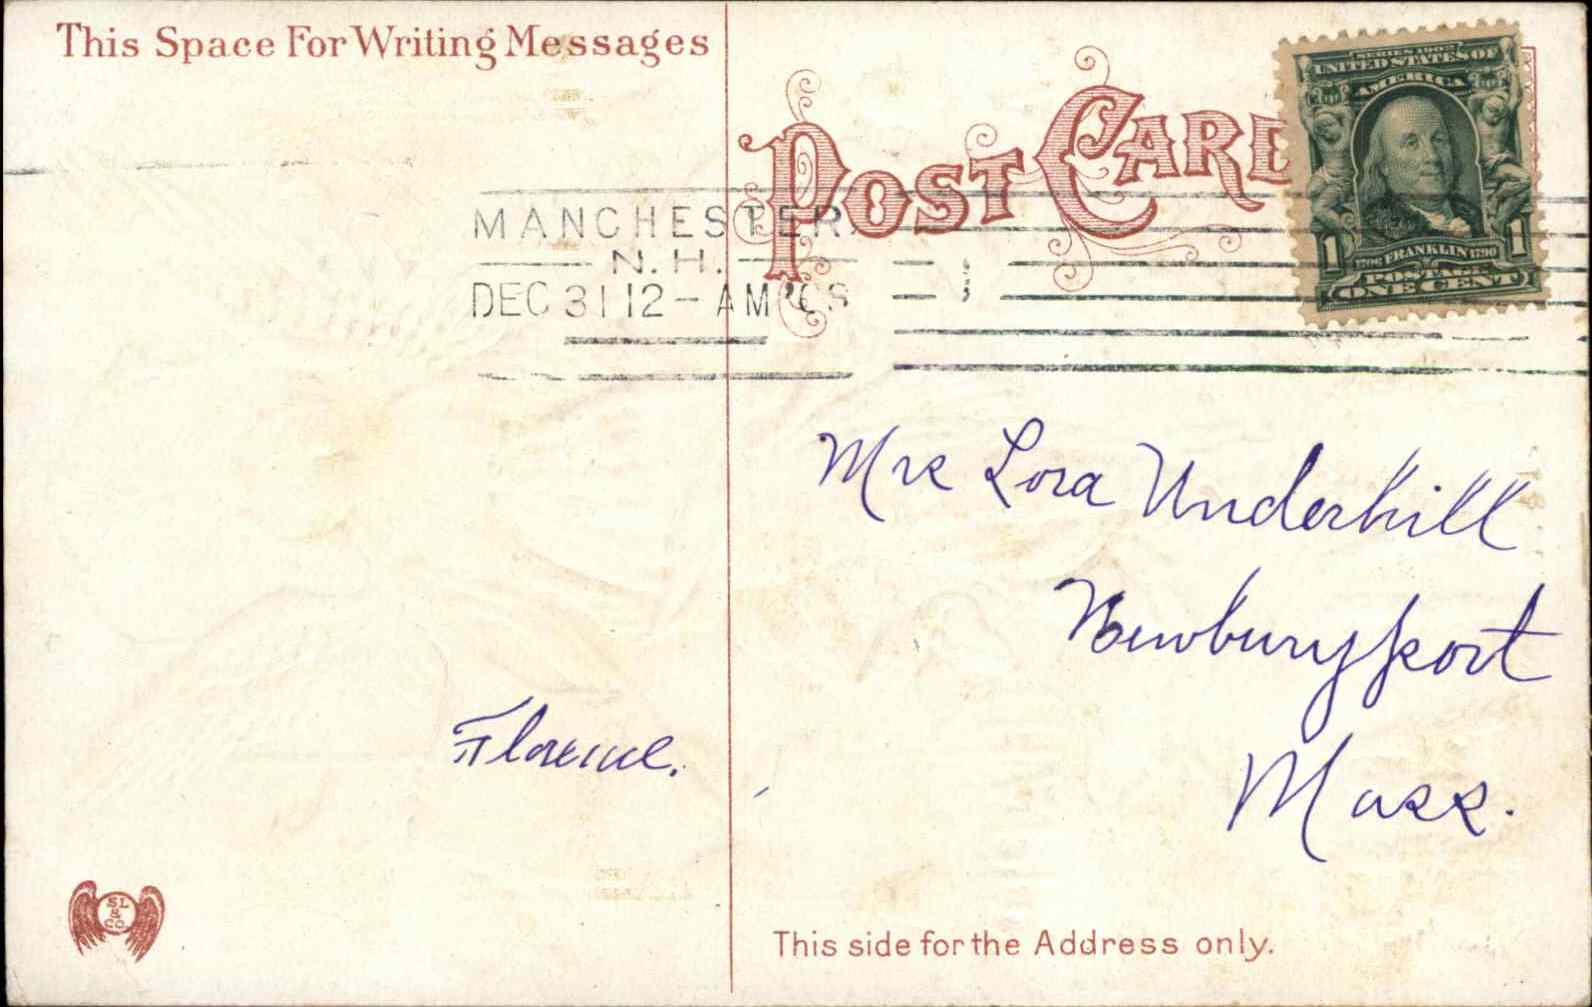 This Space For Writing Messages
POST CARD
SERIES 1902
UNITED STATES OF
AMERICA
1 1
1706 FRANKLIN 1790
POSTAGE
ONE CENT
MANCHESTER
N.H.
DEC 31 12-AM
Mrs Lora Underhill
Newburyport
Mass.
Florence.
SL
&
CO
This side for the Address only.